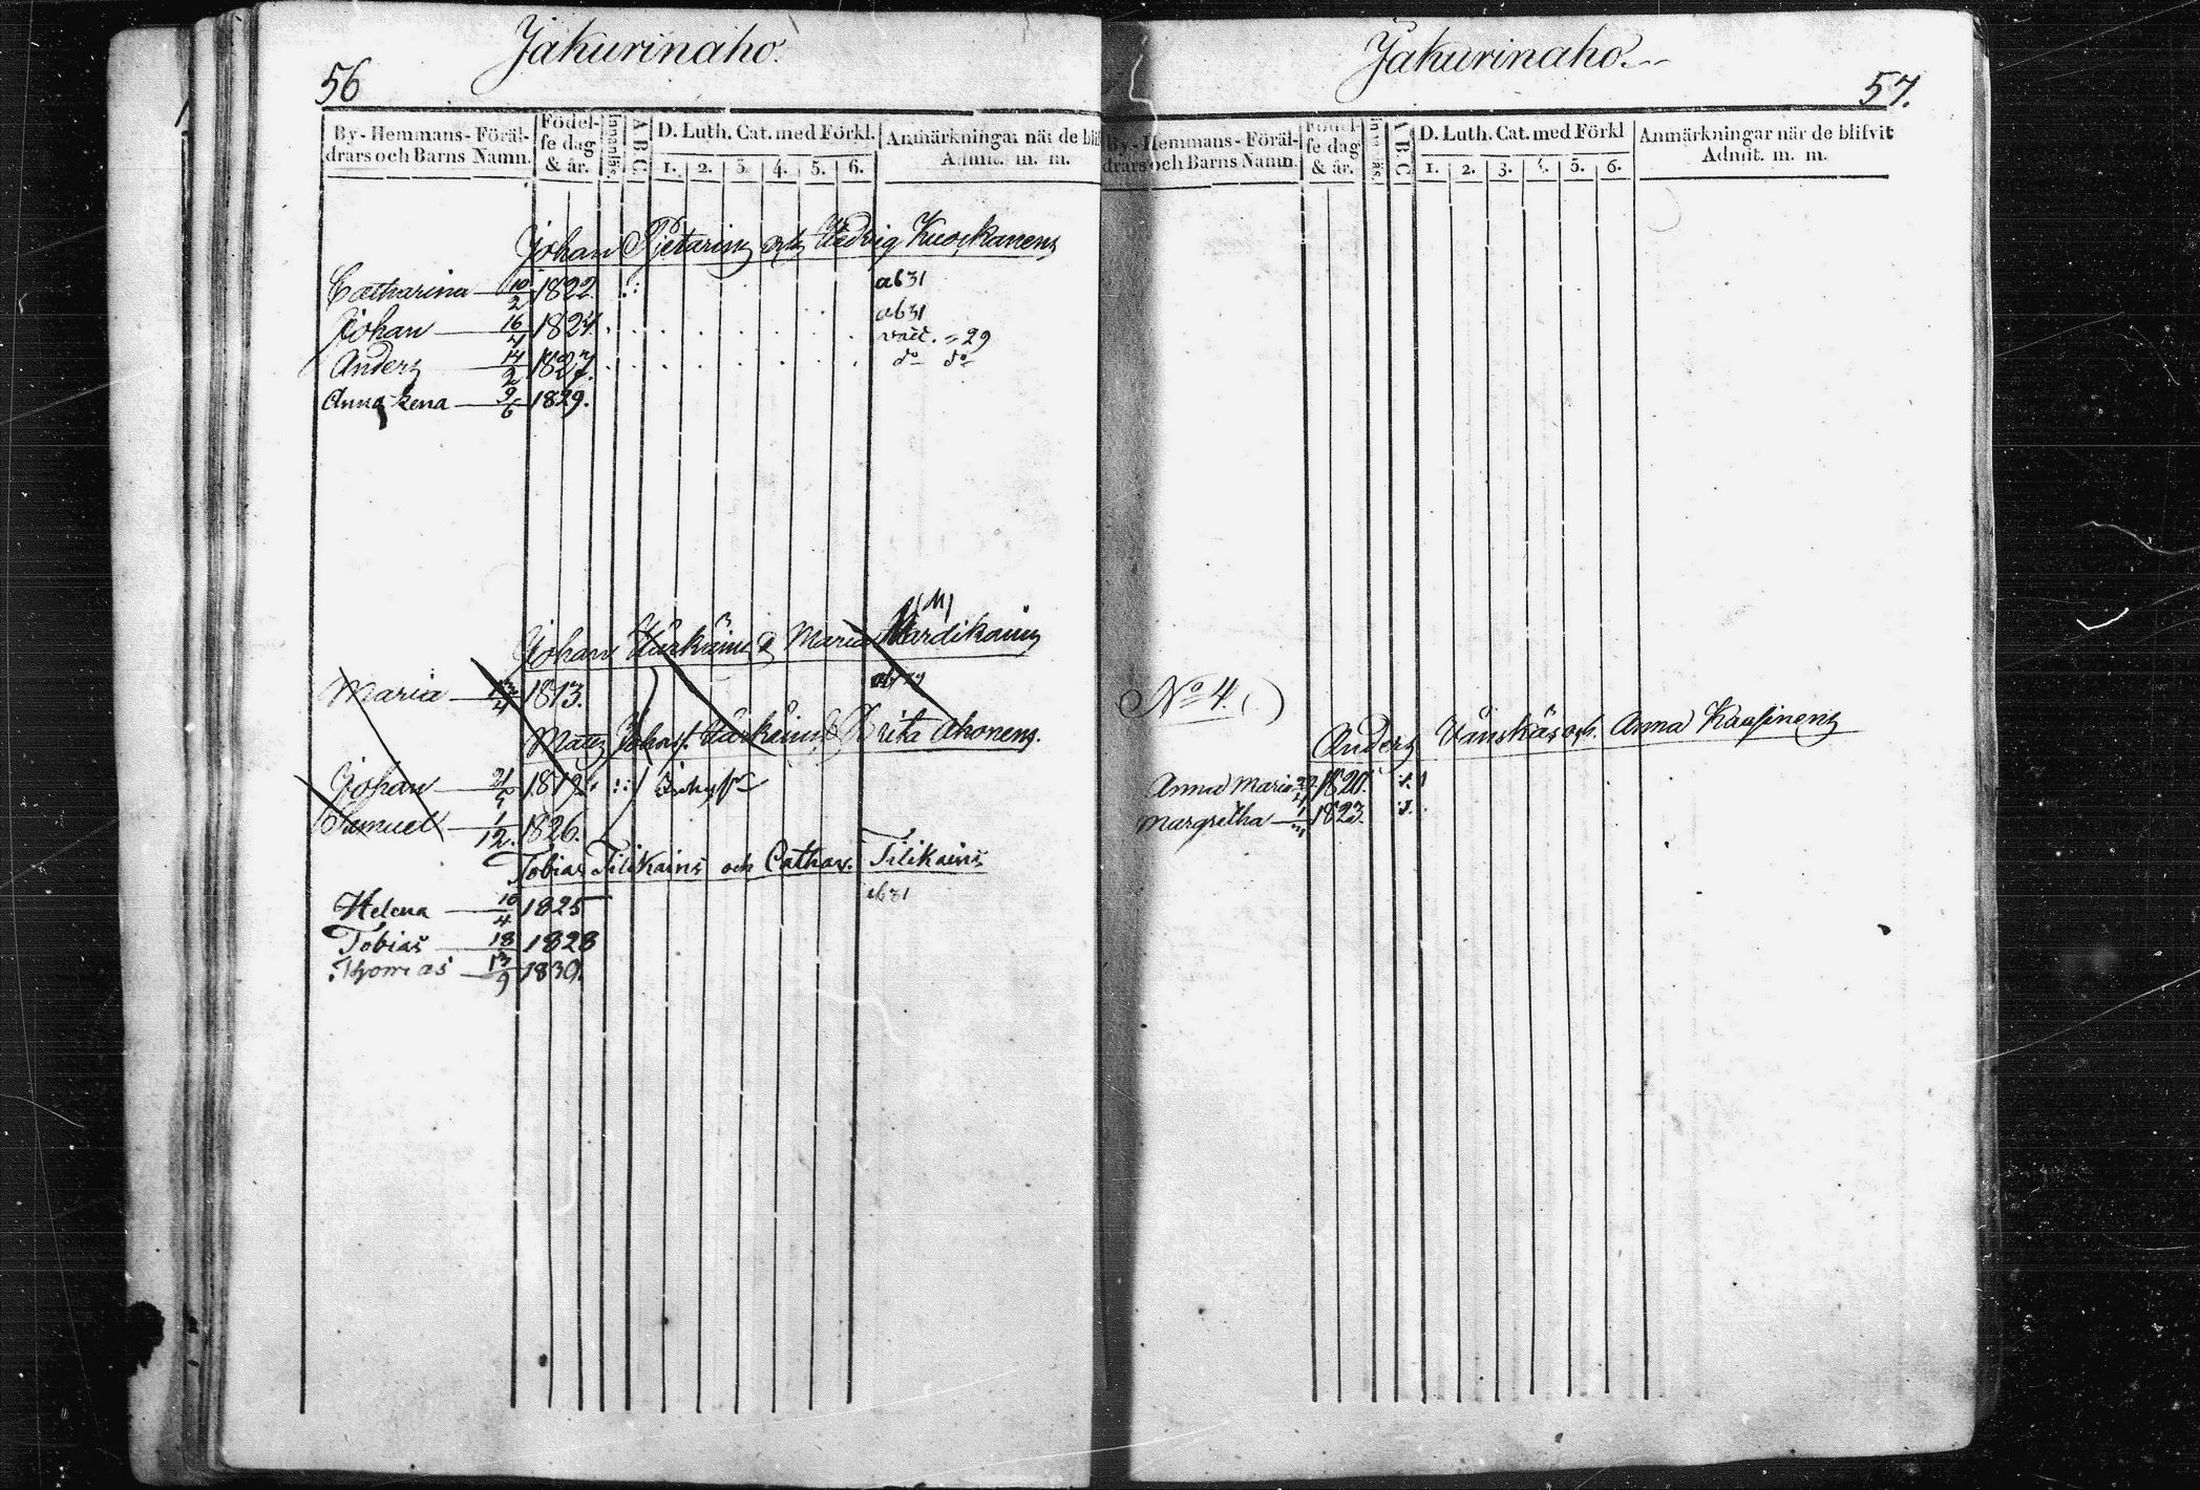 Jakurinaho.
56
By-Hemmans-Föräl-
drars och Barns Namn.
Födel-
se dag
& år.
Innanläs.
A B C
D. Luth. Cat. med Förkl.
1. 2. 3. 4. 5. 6.
Anmärkningar när de bli
Admit. m. m.
Johan Pjetarinz och Hedvig Kuoskanens
Catharina 10/2 1822 ab31
Johan 16/4 1824. ab31
vacc. 29
Anders 14/2 1827. do do
Anna Lena 9/6 1829.
Johan & Maria
Maria 1813.
Matts Johans. Brita Ahonens.
Johan 21/5 1812
Samuel 1/12. 1826.
Tobias Tilikains och Cathar. Tilikains
ab31
Helena 10/4 1825
Tobias 18 1828
Thomas 13/9 1830.
Jakurinaho.
57.
By-Hemmans-Föräl-
drars och Barns Namn.
Födel-
se dag
& år.
Innanläs.
A B C
D. Luth. Cat. med Förkl
1. 2. 3. 4. 5. 6.
Anmärkningar när de blifvit
Admit. m. m.
No 4.
Anders Vänskäs och Anna Kaasinens
Anna Maria 22/4 1820.
Margretha 1823.